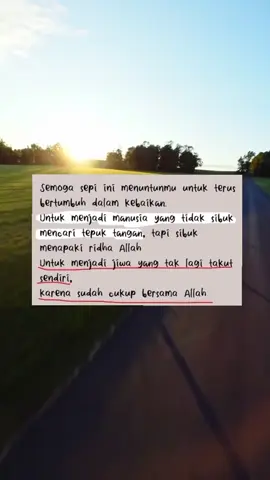 Semoga sepi ini menuntunmu untuk terus
bertumbuh dalam kebaikan
Untuk menjadi manusia yang tidak sibuk
mencari tepuk tangan, tapi sibuk
menapaki ridha Allah
Untuk menjadi jiwa yang tak lagi takut
sendiri,
karena sudah cukup bersama Allah